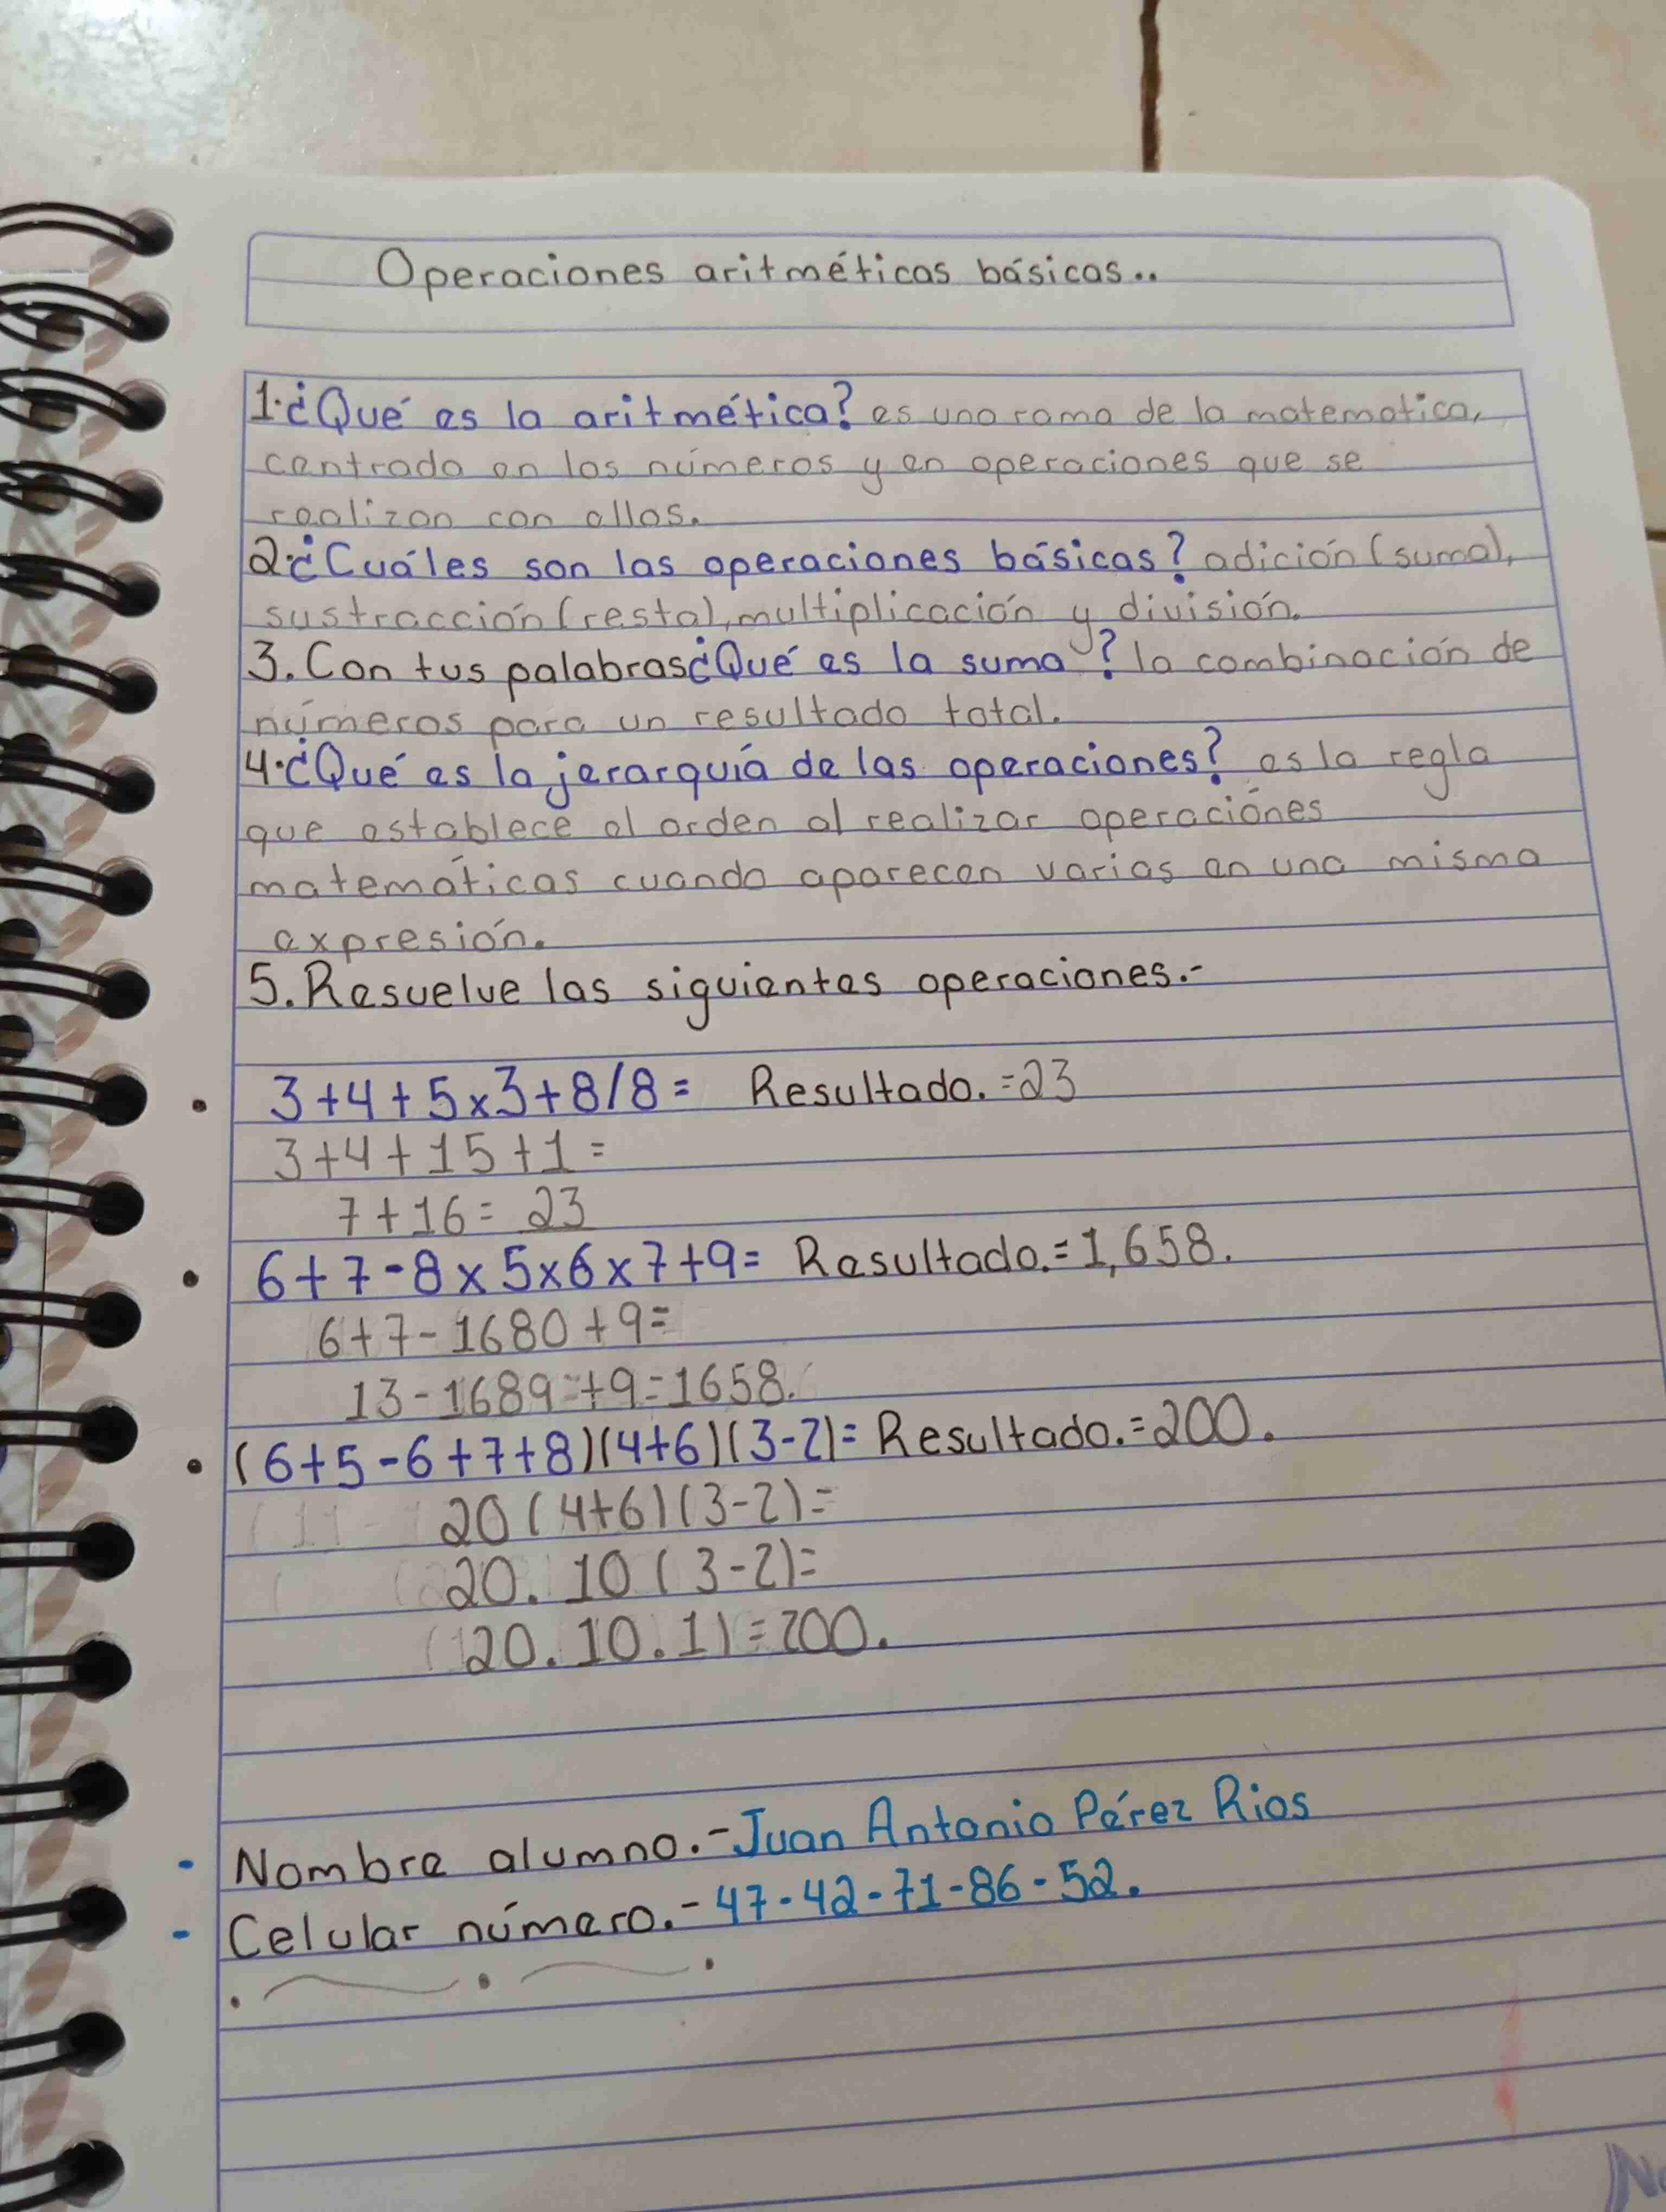 Operaciones aritméticas básicas..
1.¿Qué es la aritmética? es una rama de la matematica,
centrada en los números y en operaciones que se
realizan con ellos.
2.¿Cuáles son las operaciones básicas? adición (suma),
sustracción (resta), multiplicación y división.
3. Con tus palabras ¿Qué es la suma? la combinación de
números para un resultado total.
4.¿Qué es la jerarquía de las operaciones? es la regla
que establece el orden al realizar operaciónes
matemáticas cuando aparecen varias en una misma
expresión.
5. Resuelve las siguientes operaciones.-
• 3+4+5x3+8/8= Resultado.=23
3+4+15+1=
7+16= 23
• 6+7-8x5x6x7+9= Resultado.=1,658.
6+7-1680+9=
13-1689=+9=1658.
• (6+5-6+7+8)(4+6)(3-2)= Resultado.=200.
20(4+6)(3-2)=
20.10(3-2)=
(20.10.1)=200.
- Nombre alumno.- Juan Antonio Pérez Rios
- Celular número.- 47-42-71-86-52.